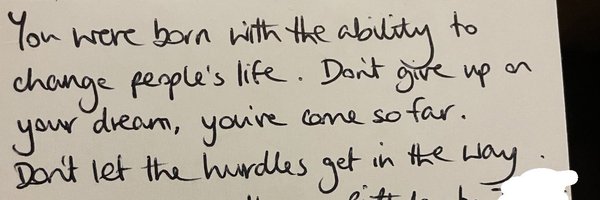 You were born with the ability to
change people's life. Don't give up on
your dream, you've come so far.
Don't let the hurdles get in the way.